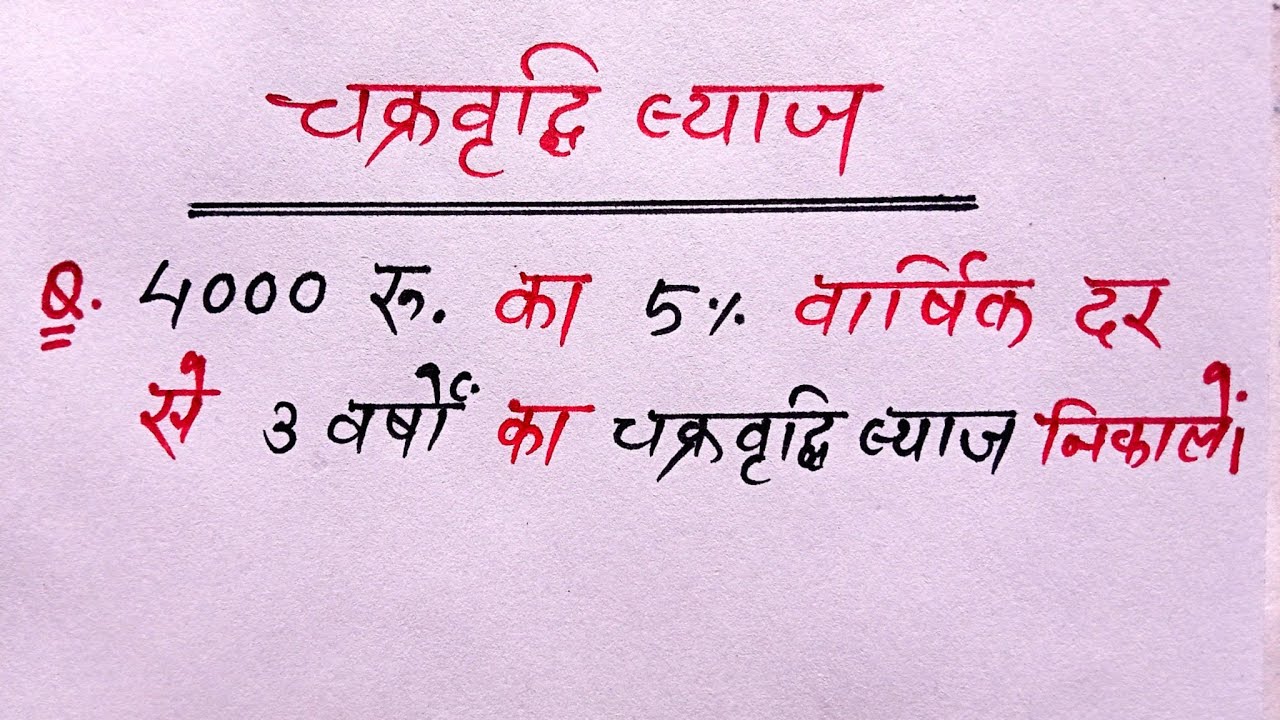 चक्रवृद्धि ब्याज
Q. 4000 रु. का 5% वार्षिक दर
से 3 वर्षों का चक्रवृद्धि ब्याज निकालों